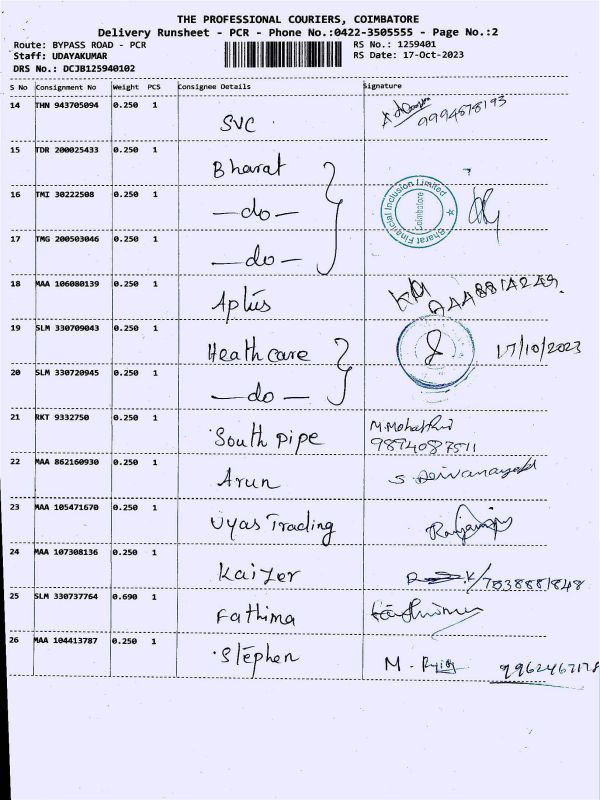 THE PROFESSIONAL COURIERS, COIMBATORE
Delivery Runsheet - PCR - Phone No.:0422-3505555 - Page No.:2
Route: BYPASS ROAD - PCR RS No.: 1259401
Staff: UDAYAKUMAR RS Date: 17-Oct-2023
DRS No.: DCJB125940102
S No Consignment No Weight PCS Consignee Details Signature
14 THN 943705094 0.250 1 SVC 9994578193
15 TDR 200025433 0.250 1 Bharat
16 TMI 30222508 0.250 1 —do— Bharat Financial Inclusion Limited Coimbatore
17 TMG 200503046 0.250 1 —do—
18 MAA 106080139 0.250 1 Aplus
19 SLM 330709043 0.250 1 Heath care 17/10/2023
20 SLM 330720945 0.250 1 —do—
21 RKT 9332750 0.250 1 South pipe 9894087511
22 MAA 862160930 0.250 1 Arun
23 MAA 105471670 0.250 1 Vyas Trading
24 MAA 107308136 0.250 1 Kaizer 7838881848
25 SLM 330737764 0.690 1 Fathima
26 MAA 104413787 0.250 1 Stephen M.